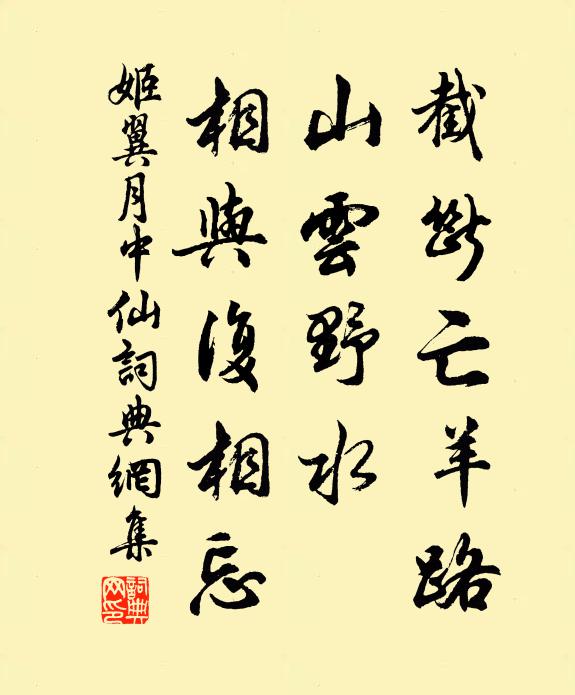 截斷亡羊路
山雲野水
相與復相忘
姬翼月中仙詞典網集
詞典網印